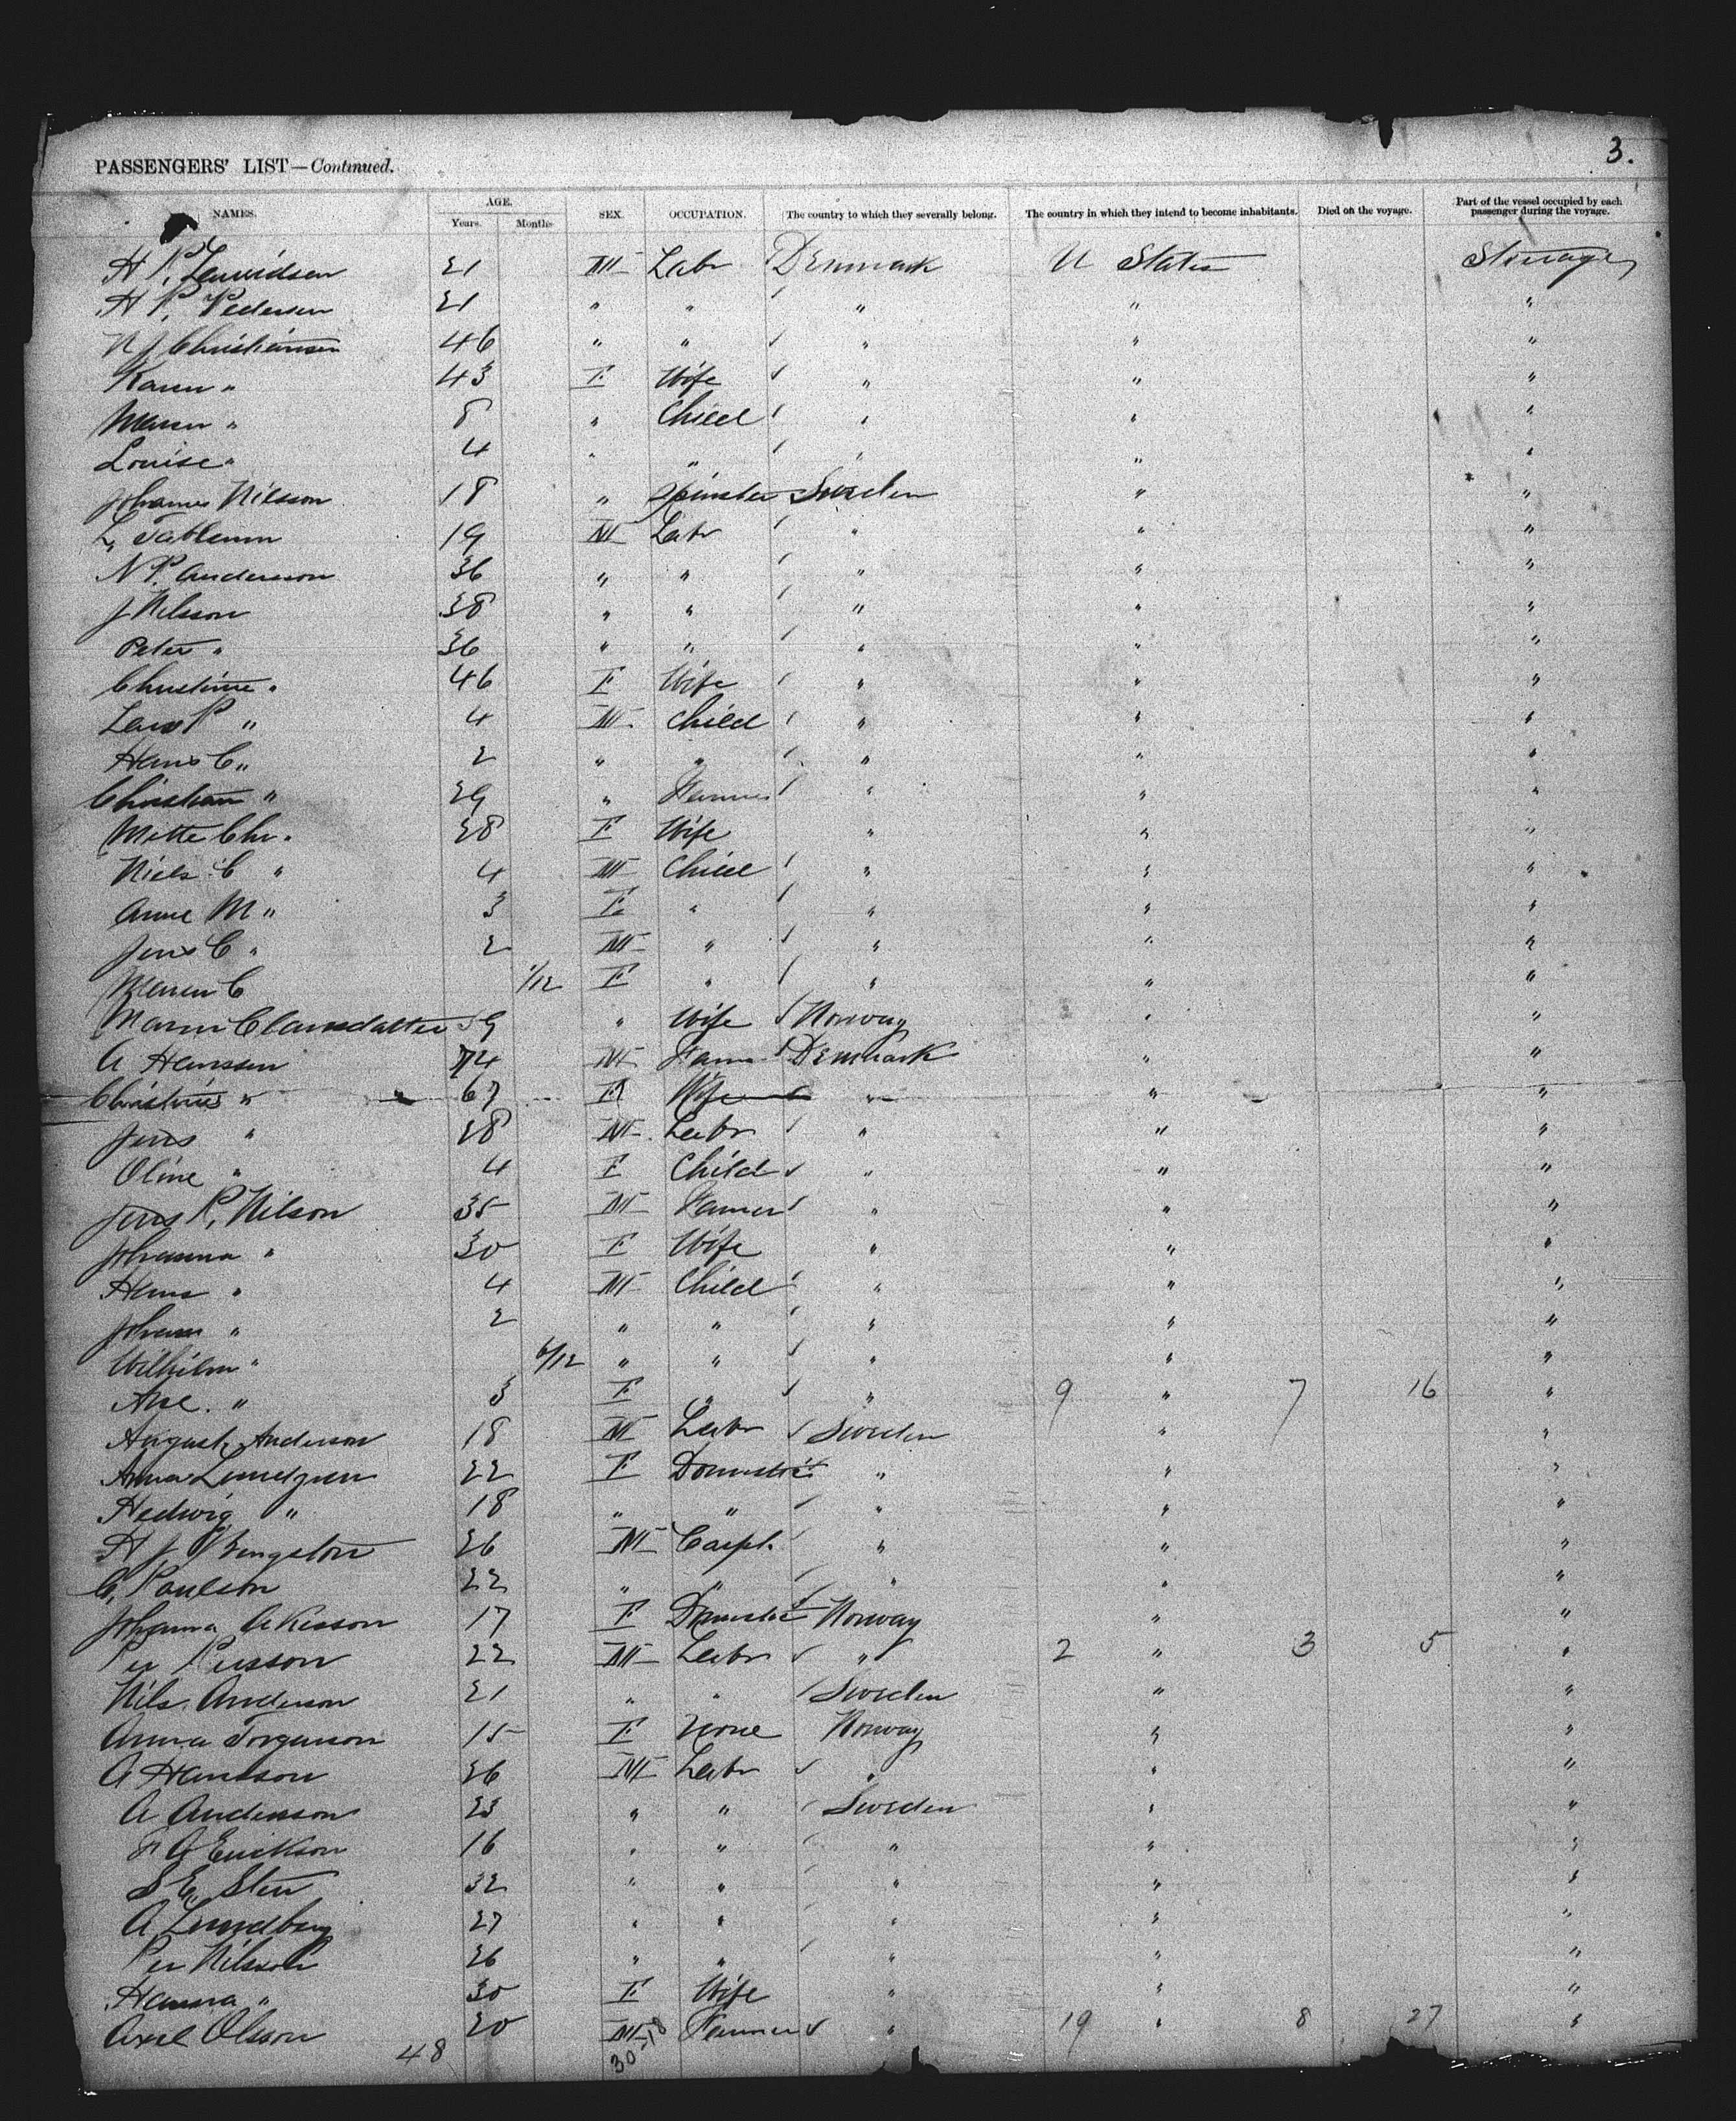 3.
PASSENGERS' LIST—Continued.
NAMES. AGE. Years. Months SEX. OCCUPATION. The country to which they severally belong. The country in which they intend to become inhabitants. Died on the voyage. Part of the vessel occupied by each passenger during the voyage.
H P. 21 M Labr Denmark U States Steerage
H P. Pedersen 21 " " " " "
N J Christiansen 46 " " " " "
Karen " 43 F Wife " " "
Maren " 8 " Child " " "
Louise " 4 " " " " "
Johanne Nilsson 18 " Spinster Sweden " "
L. 19 M Labr " " "
N P. Anderson 36 " " " " "
J Nilsson 38 " " " " "
Peter " 36 " " " " "
Christine " 46 F Wife " " "
Lars P " 4 M Child " " "
Hans C " 2 " " " " "
Christian " 29 " Farmer " " "
Mette Chr. " 28 F Wife " " "
Niels C " 4 M Child " " "
Anne M " 3 F " " " "
Jens C " 2 M " " " "
Maren C 1/12 F " " " "
Maren 59 " Wife Norway " "
A Hanssen 74 M Farm. Denmark " "
Christine " 67 F Wife " " "
Jens " 28 M Labr " " "
Oline " 4 F Child " " "
Jens P. Nilson 35 M Farmer " " "
Johanna " 30 F Wife " " "
Hans " 4 M Child " " "
Johan " 2 " " " " "
Wilhelm " 6/12 " " " " "
Ane. " 3 F " " 9 " 7 16 "
August Anderson 18 M Labr Sweden " "
Anna Lundgren 22 F Domestic " " "
Hedwig " 18 " " " " "
H J Bengston 26 M Carpt. " " "
C. Paulson 22 " " " " "
Johanna Akesson 17 F Domestic Norway " "
Per Persson 22 M Labr " 2 " 3 5 "
Nils Anderson 21 " " Sweden " "
Anna Torgerson 15 F None Norway " "
A Hansson 26 M Labr " " "
A Anderson 23 " " Sweden " "
F A Erickson 16 " " " " "
S E. Sten 32 " " " " "
A Lundberg 27 " " " " "
Per Nilsson 26 " " " " "
Hanna " 30 F Wife " " "
Axel Olsson 20 M Farmer " 19 " 8 27 "
48 30-18